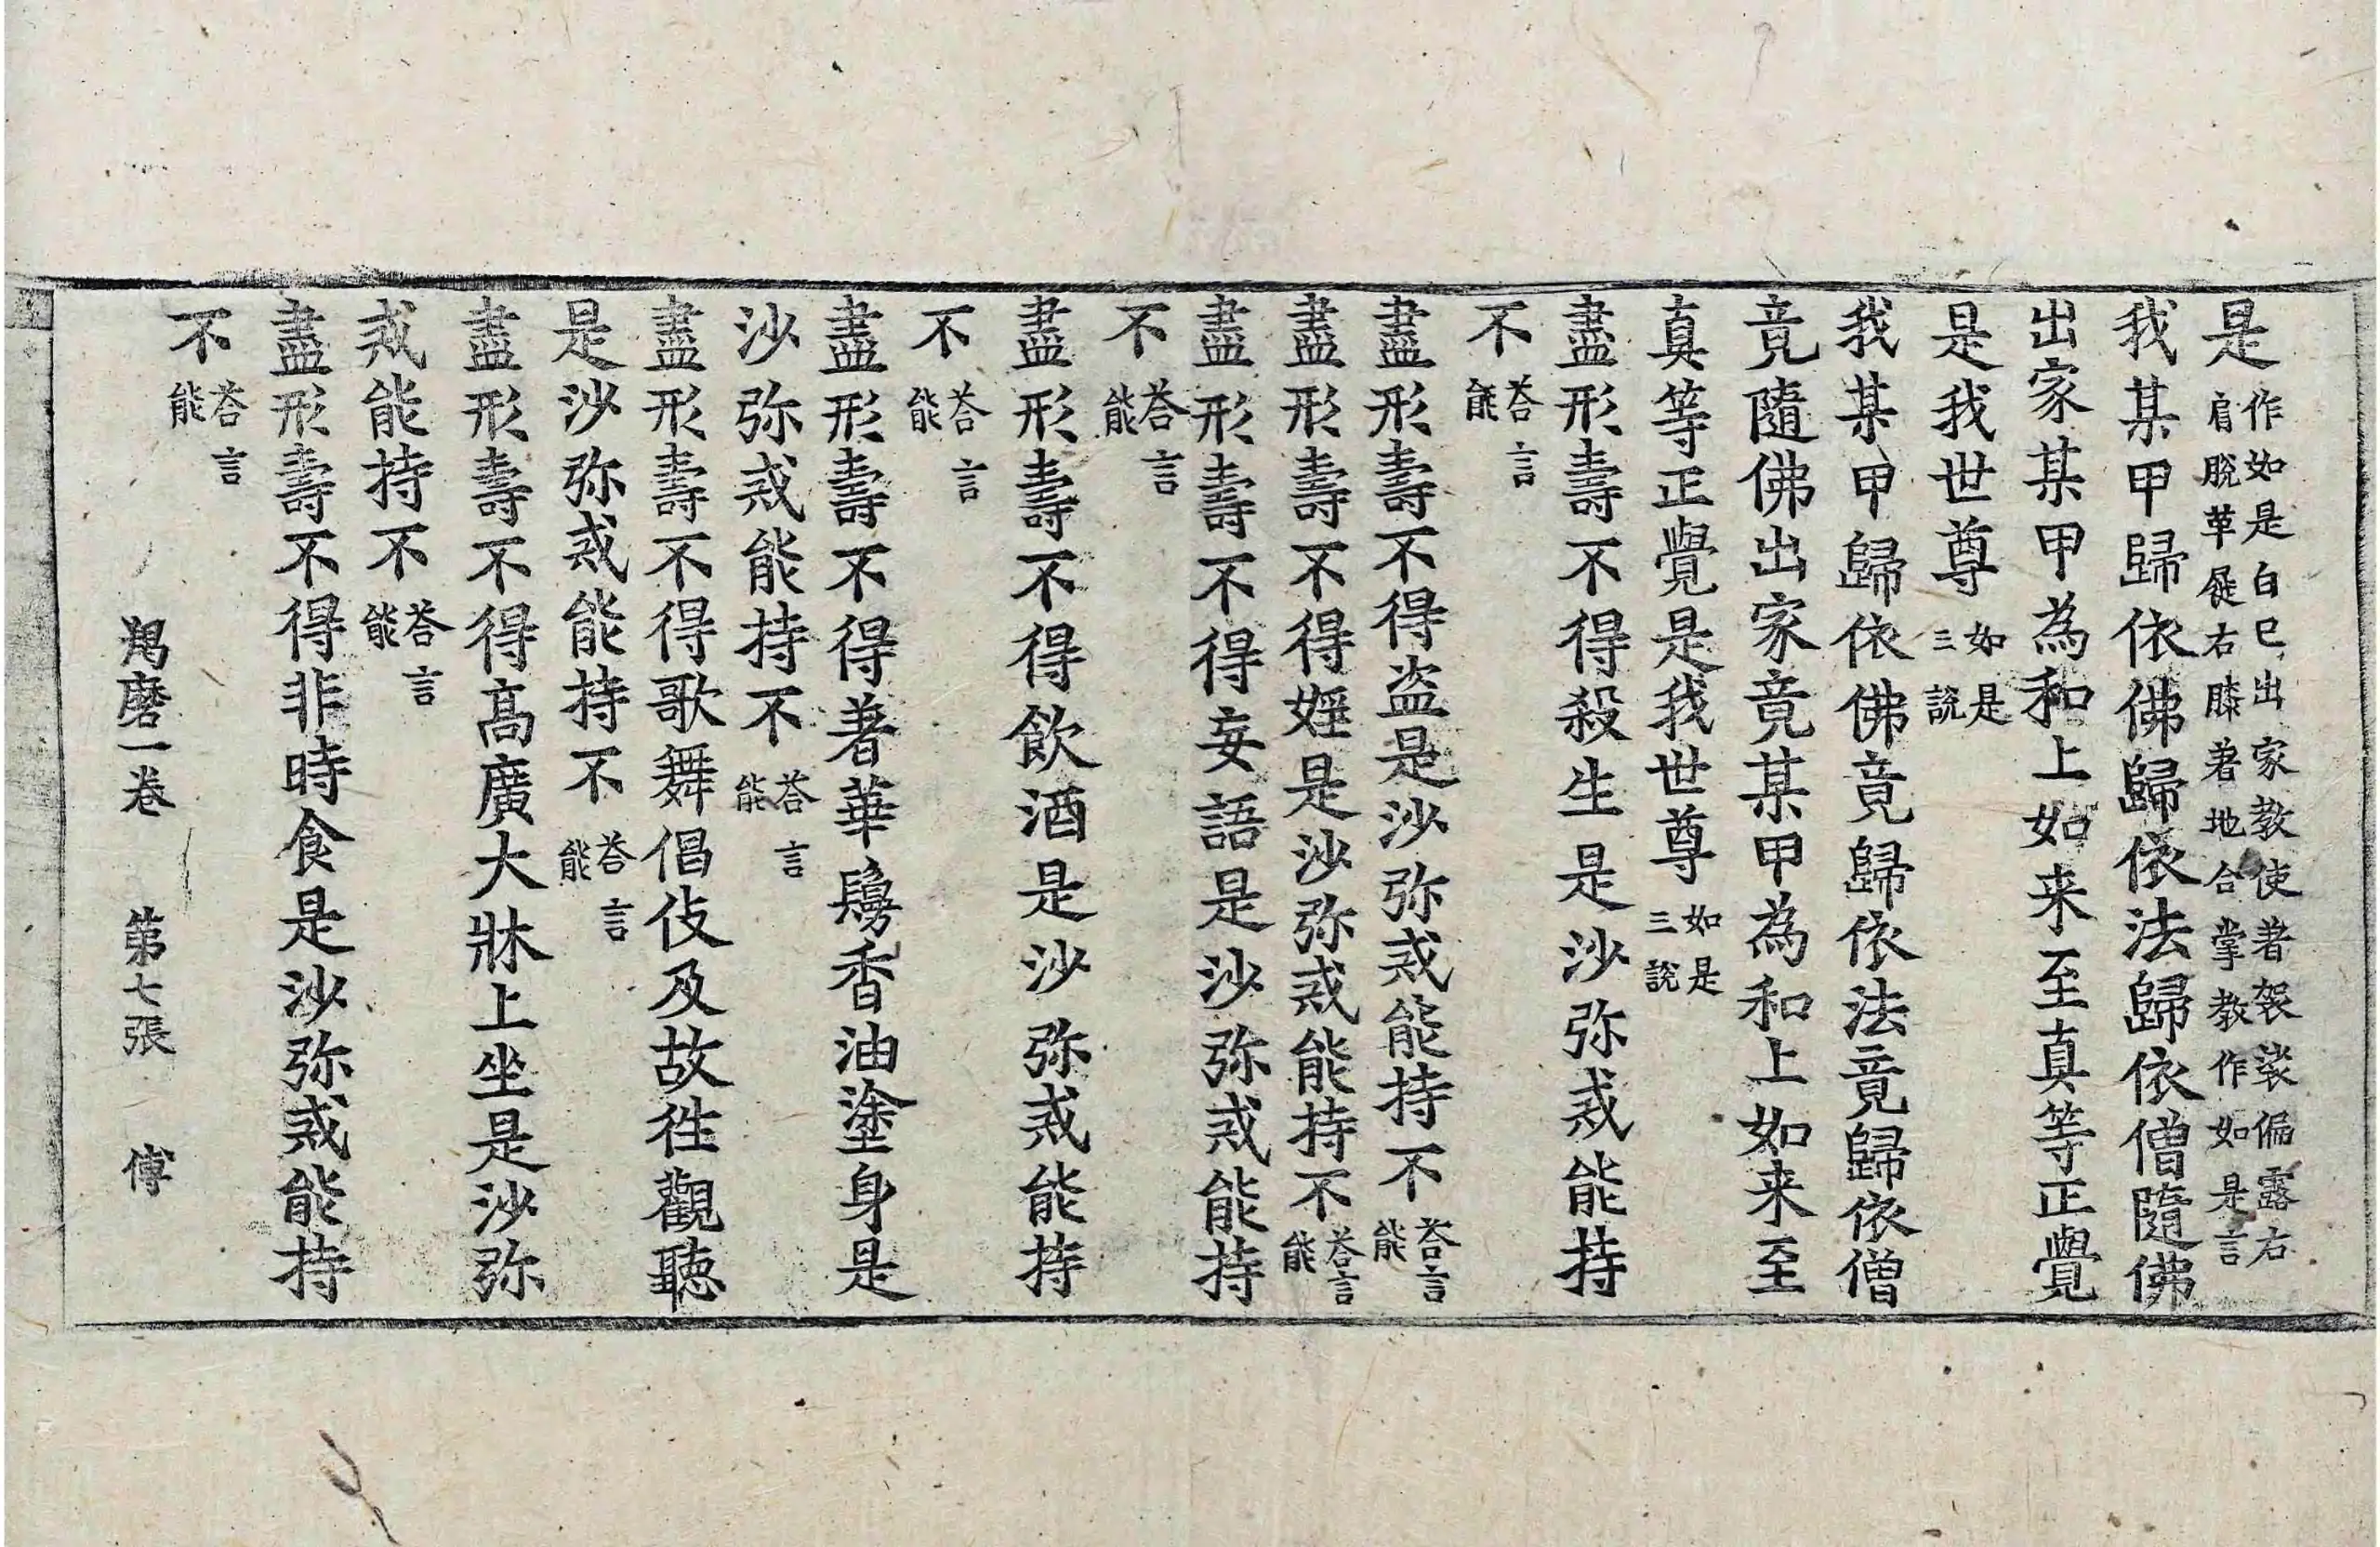 是作如是白已出家教使著袈裟偏露右肩脫革屣右膝著地合掌教作如是言
我某甲歸依佛歸依法歸依僧隨佛
出家某甲為和上如来至真等正覺
是我世尊如是三說
我某甲歸依佛竟歸依法竟歸依僧
竟隨佛出家竟某甲為和上如来至
真等正覺是我世尊如是三說
盡形壽不得殺生是沙弥戒能持
不荅言能
盡形壽不得盜是沙弥戒能持不荅言能
盡形壽不得婬是沙弥戒能持不荅言能
盡形壽不得妄語是沙弥戒能持
不荅言能
盡形壽不得飲酒是沙弥戒能持
不荅言能
盡形壽不得著華鬘香油塗身是
沙弥戒能持不荅言能
盡形壽不得歌舞倡伎及故徃觀聽
是沙弥戒能持不荅言能
盡形壽不得高廣大牀上坐是沙弥
戒能持不荅言能
盡形壽不得非時食是沙弥戒能持
不荅言能
羯磨一卷 第七張 傅